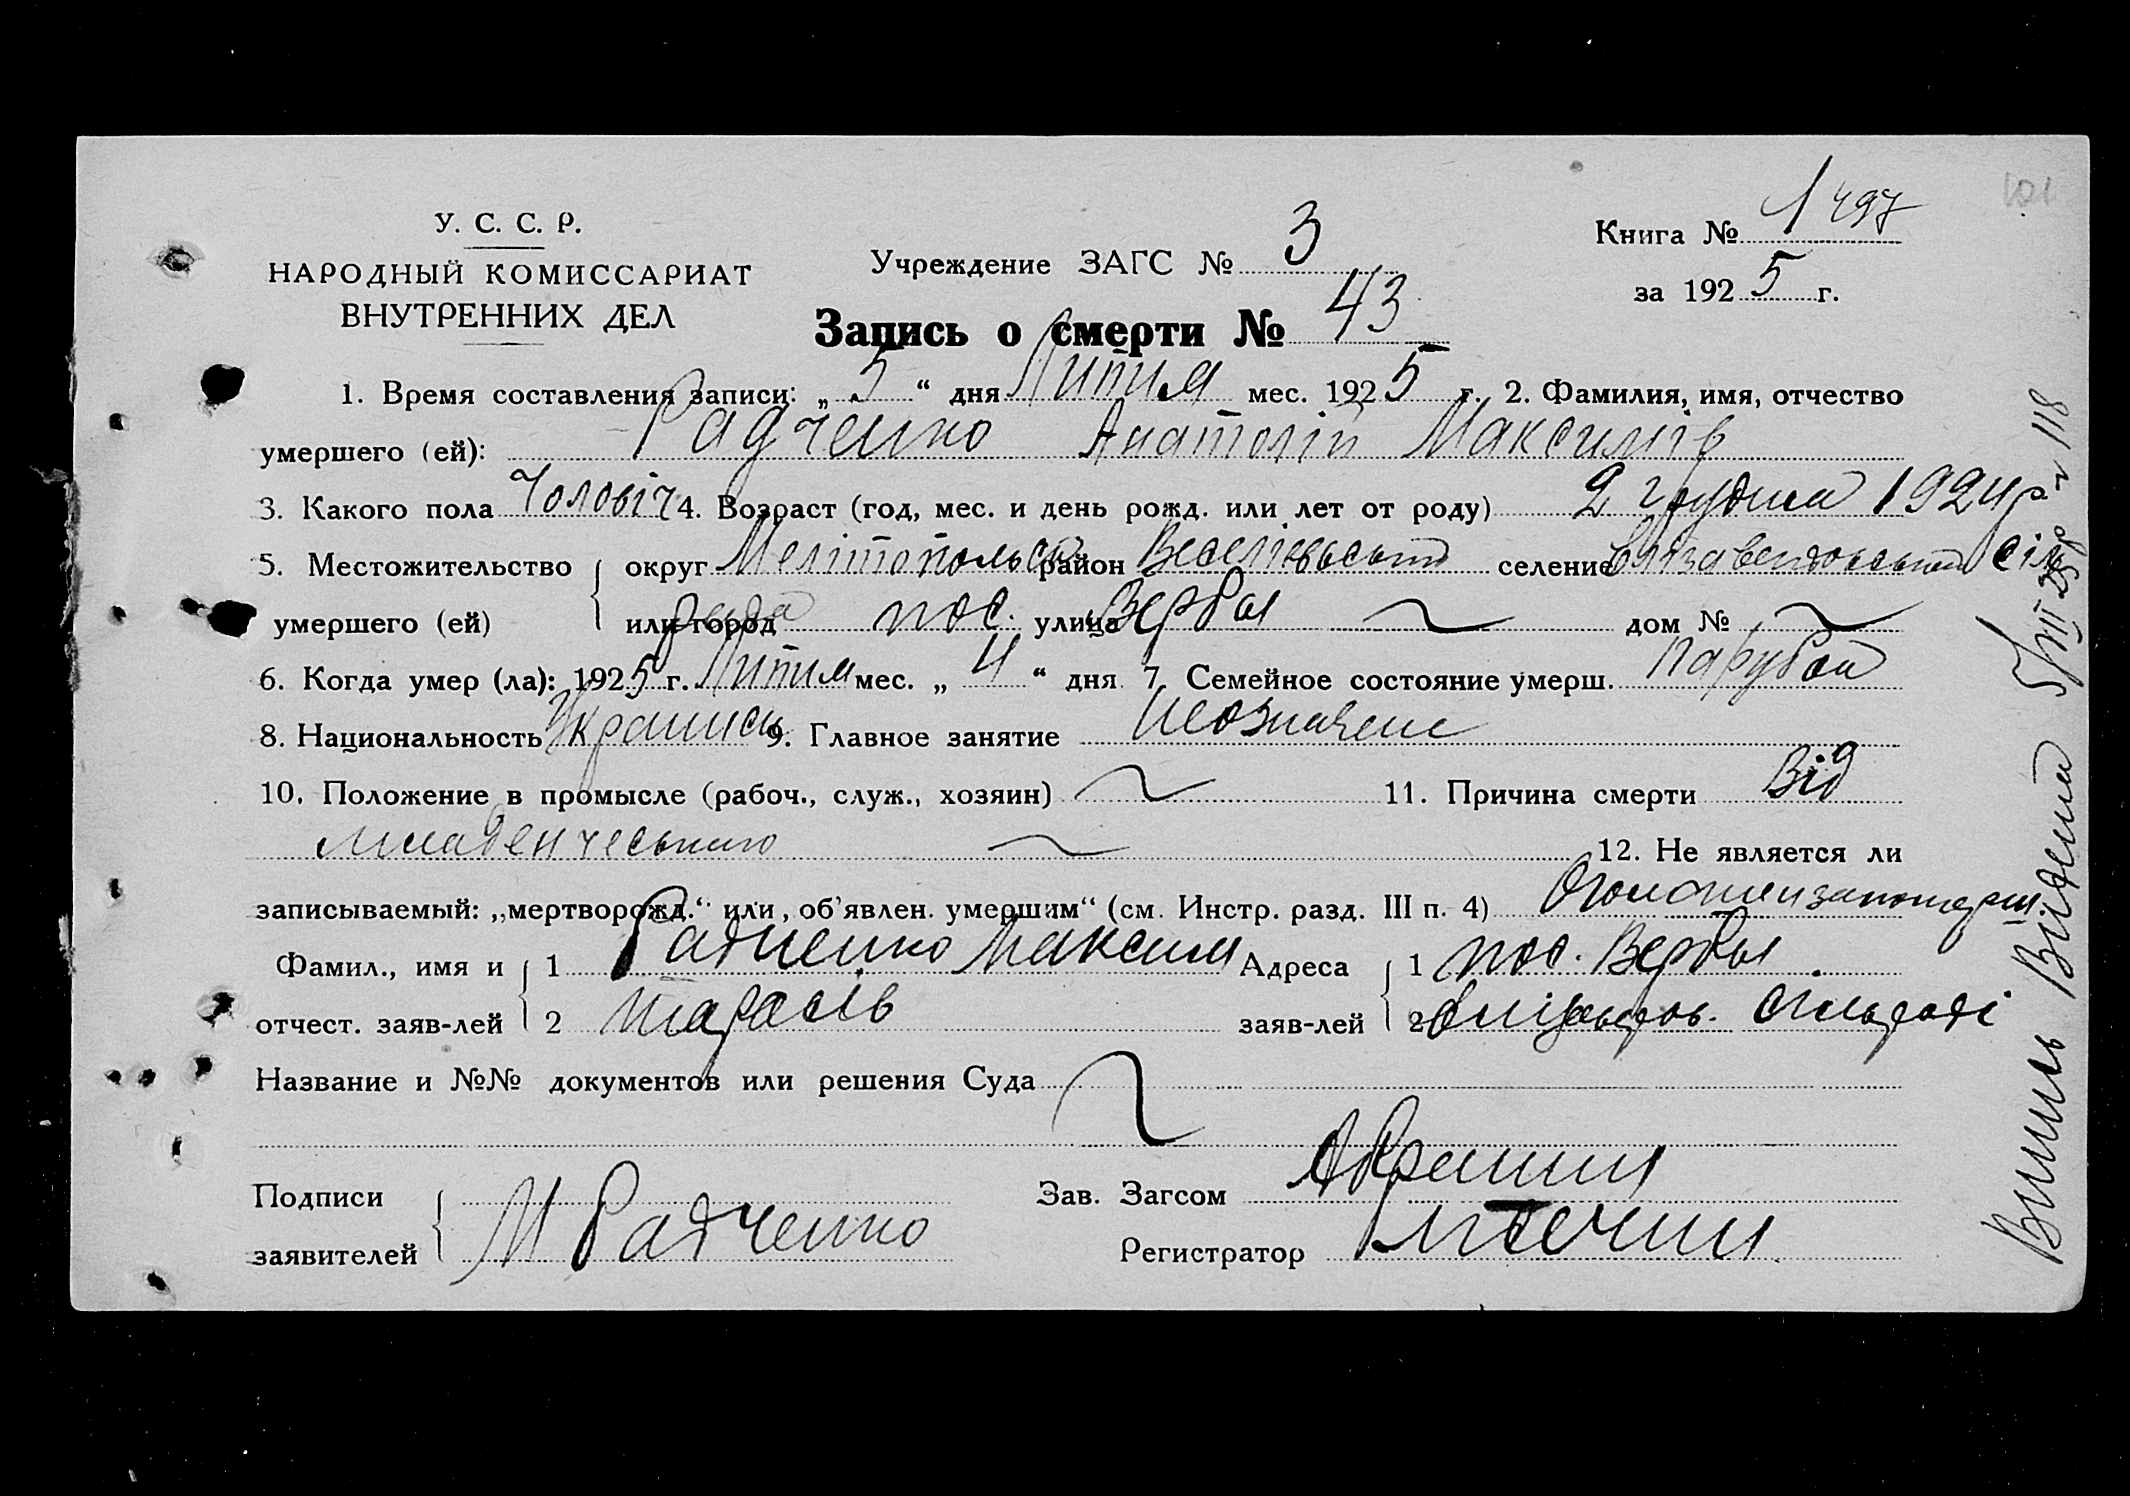 У. С. С. Р.
НАРОДНЫЙ КОМИССАРИАТ
ВНУТРЕННИХ ДЕЛ
Учреждение ЗАГС № 3
Книга № 1 497
за 1925 г.
101
Запись о смерти № 43
1. Время составления записи: „ 5 “ дня Лютия мес. 1925 г. 2. Фамилия, имя, отчество
умершего (ей): Радченко Анатолій Максимів
3. Какого пола Чоловіч 4. Возраст (год, мес. и день рожд. или лет от роду) 2 грудня 1924 р
5. Местожительство умершего (ей) округ Мелітопольск район Веселівський селение сіль
или город рада пос. улица Вербы дом №
6. Когда умер (ла): 1925 г. Лютия мес. „ 4 “ дня 7. Семейное состояние умерш. Парубок
8. Национальность Украинець 9. Главное занятие
10. Положение в промысле (рабоч., служ., хозяин) 11. Причина смерти Від
младенческого
12. Не является ли
записываемый: „мертворожд.“ или „об’явлен. умершим“ (см. Инстр. разд. III п. 4)
Фамил., имя и отчест. заяв-лей 1 Радченко Максим Адреса заяв-лей 1 пос. Вербы
2 Тарасів 2 сільраді
Название и №№ документов или решения Суда
Подписи заявителей М Радченко
Зав. Загсом
Регистратор
Випись Видана 5/XII 25 р № 118